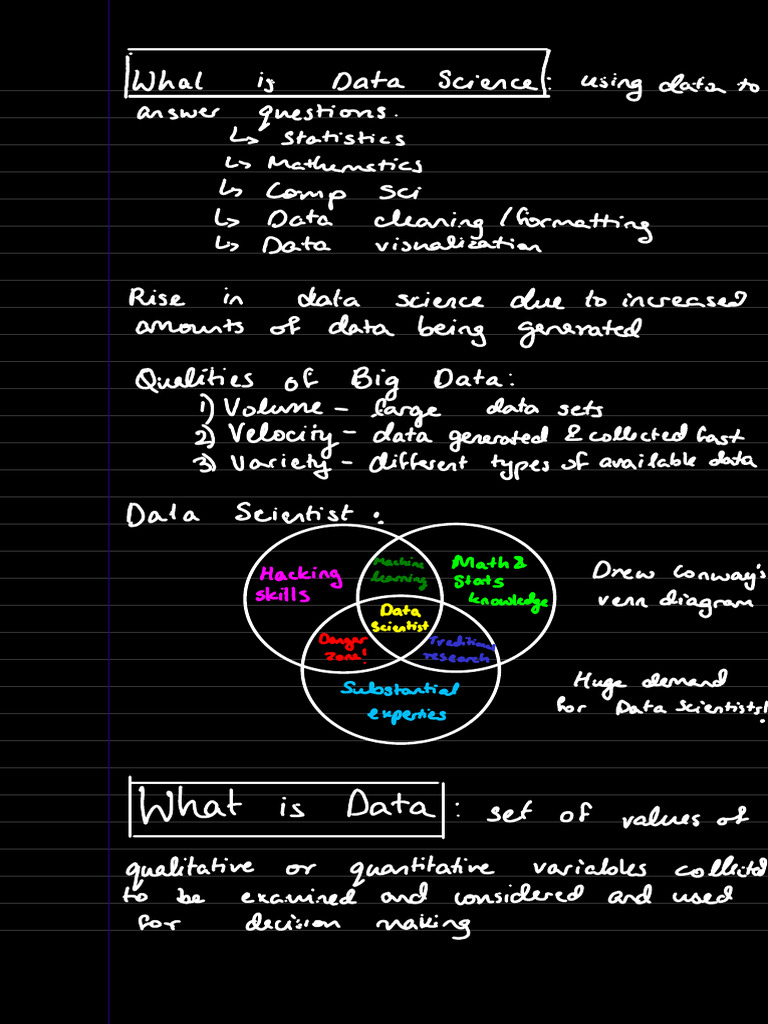 What is Data Science: using data to
answer questions.
↳ Statistics
↳ Mathematics
↳ Comp Sci
↳ Data cleaning / formatting
↳ Data visualization
Rise in data science due to increased
amounts of data being generated
Qualities of Big Data:
1) Volume - large data sets
2) Velocity - data generated & collected fast
3) Variety - different types of available data
Data Scientist:
Hacking
skills
Machine
learning
Math &
Stats
knowledge
Data
Scientist
Danger
zone!
Traditional
research
Substantial
experties
Drew Conway's
venn diagram
Huge demand
for Data Scientists!
What is Data: set of values of
qualitative or quantitative variables collected
to be examined and considered and used
for decision making